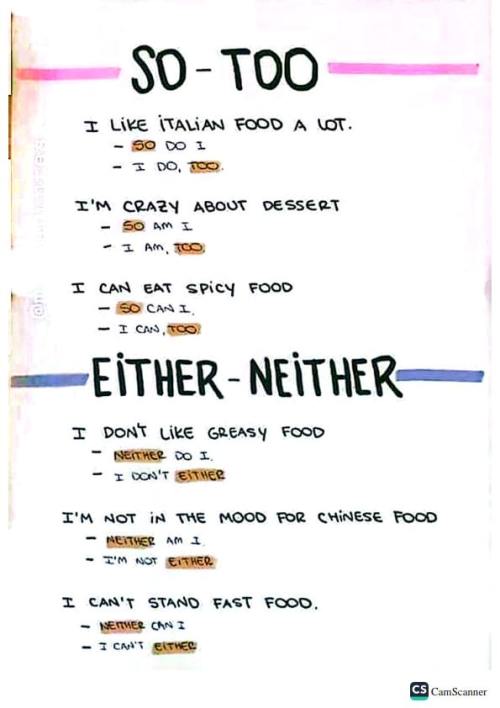 SO - TOO
I LIKE ITALIAN FOOD A LOT.
- SO DO I
- I DO, TOO.
I'M CRAZY ABOUT DESSERT
- SO AM I
- I AM, TOO
I CAN EAT SPICY FOOD
- SO CAN I.
- I CAN, TOO
EITHER - NEITHER
I DON'T LIKE GREASY FOOD
- NEITHER DO I.
- I DON'T EITHER
I'M NOT IN THE MOOD FOR CHINESE FOOD
- NEITHER AM I.
- I'M NOT EITHER
I CAN'T STAND FAST FOOD.
- NEITHER CAN I
- I CAN'T EITHER
CS CamScanner